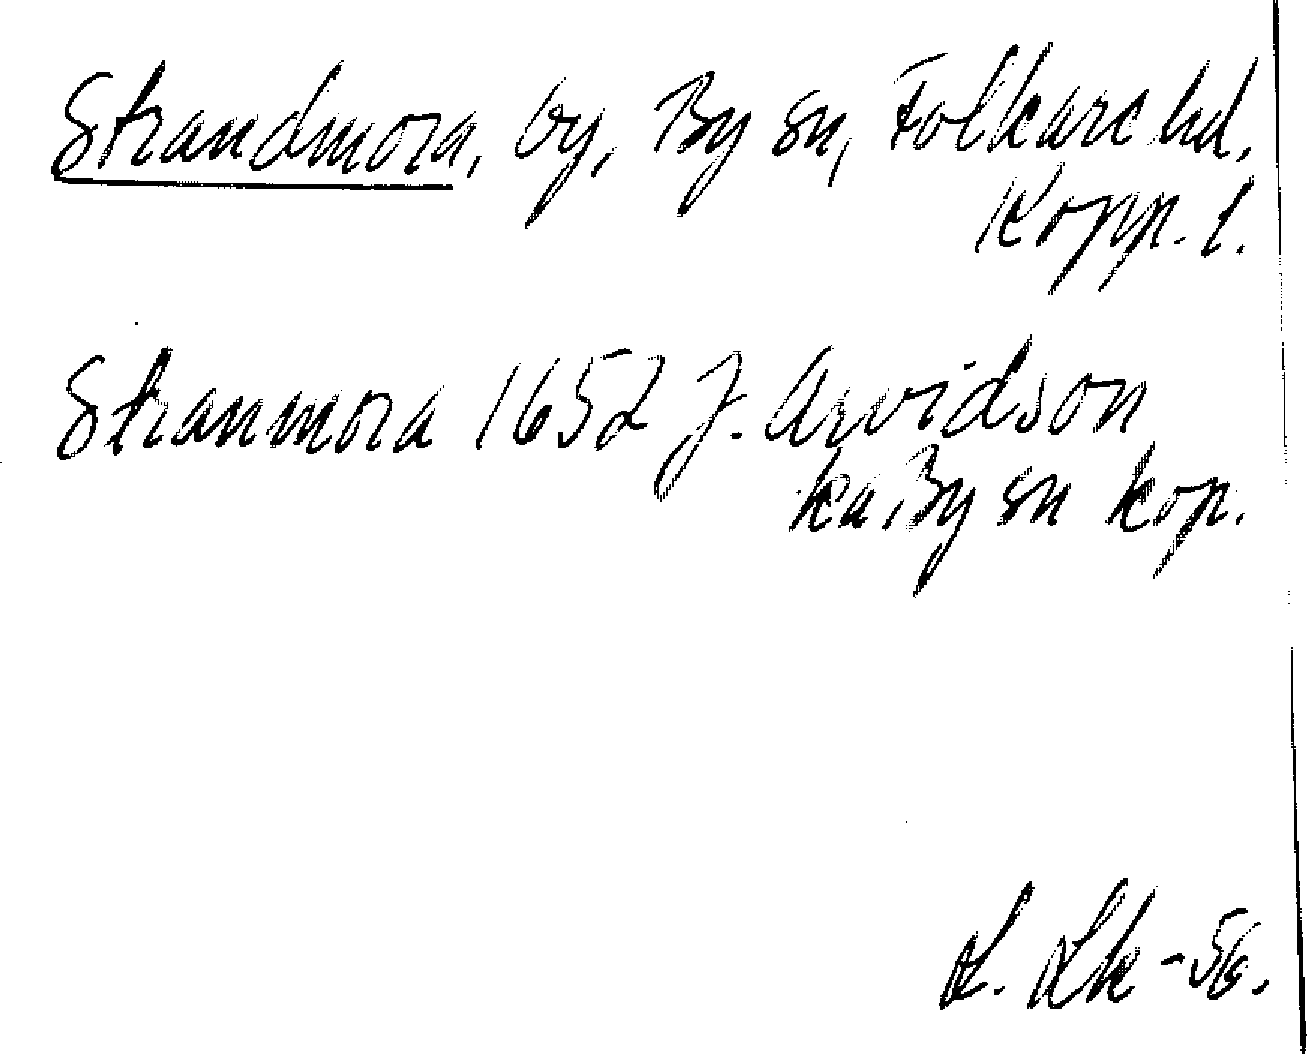 Strandmora, by, By sn, Folkare hd,
Kopp. l.
Stranmora 1652 J. Arvidson
ka, By sn kop.
L. Lk -56.